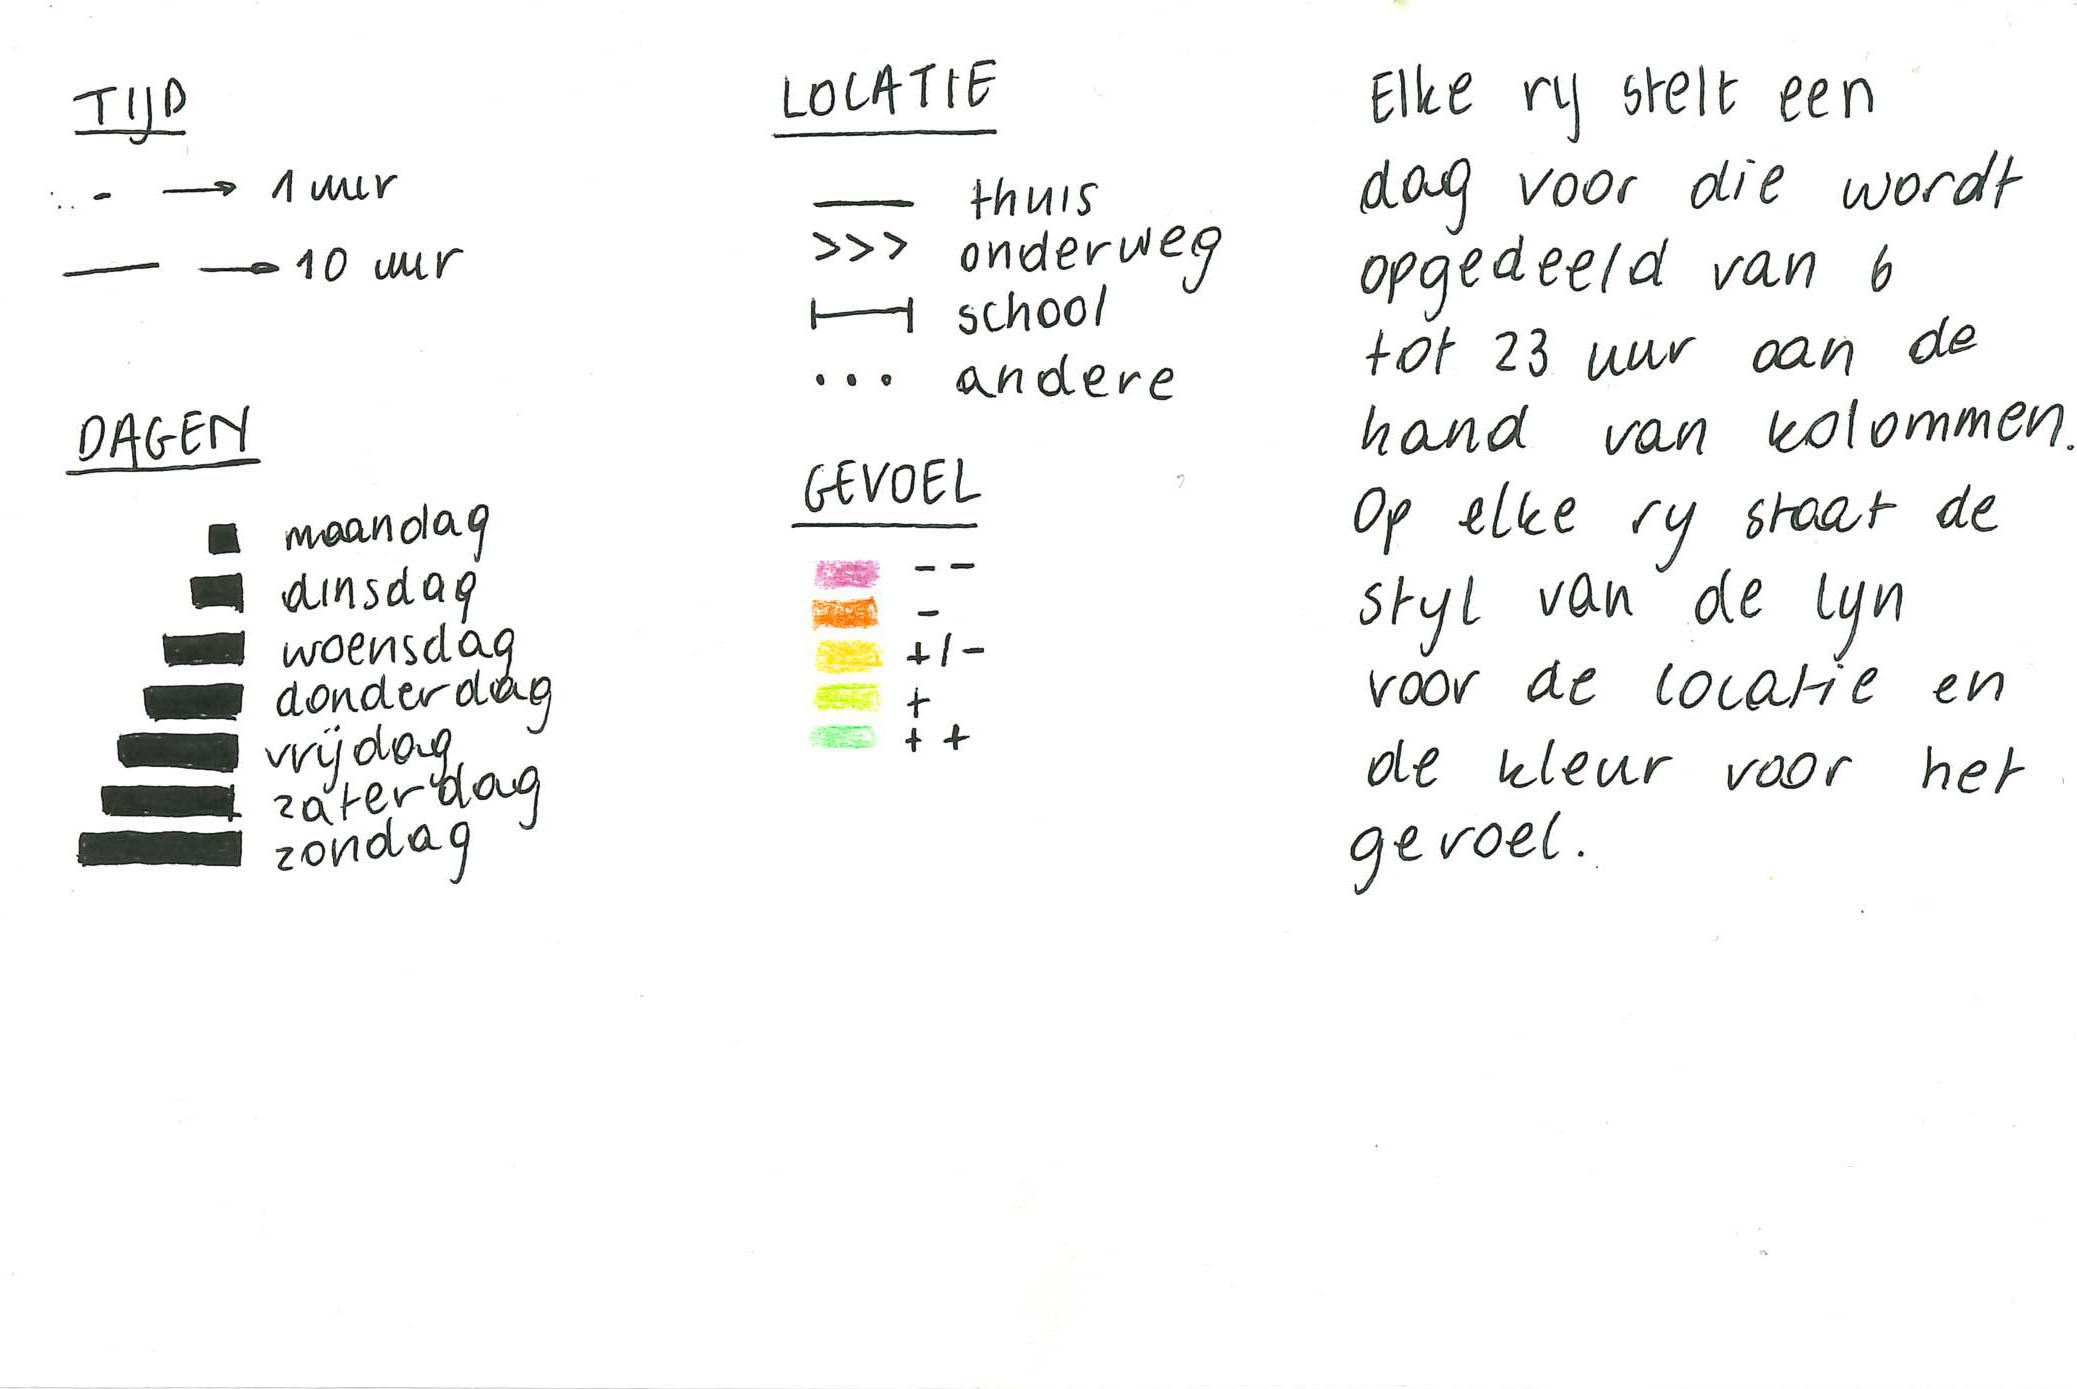 TIJD
1 uur
10 uur
DAGEN
maandag
dinsdag
woensdag
donderdag
vrijdag
zaterdag
zondag
LOCATIE
thuis
>>> onderweg
school
... andere
GEVOEL
--
-
+/-
+
++
Elke rij stelt een
dag voor die wordt
opgedeeld van 6
tot 23 uur aan de
hand van kolommen.
Op elke rij staat de
stijl van de lijn
voor de locatie en
de kleur voor het
gevoel.